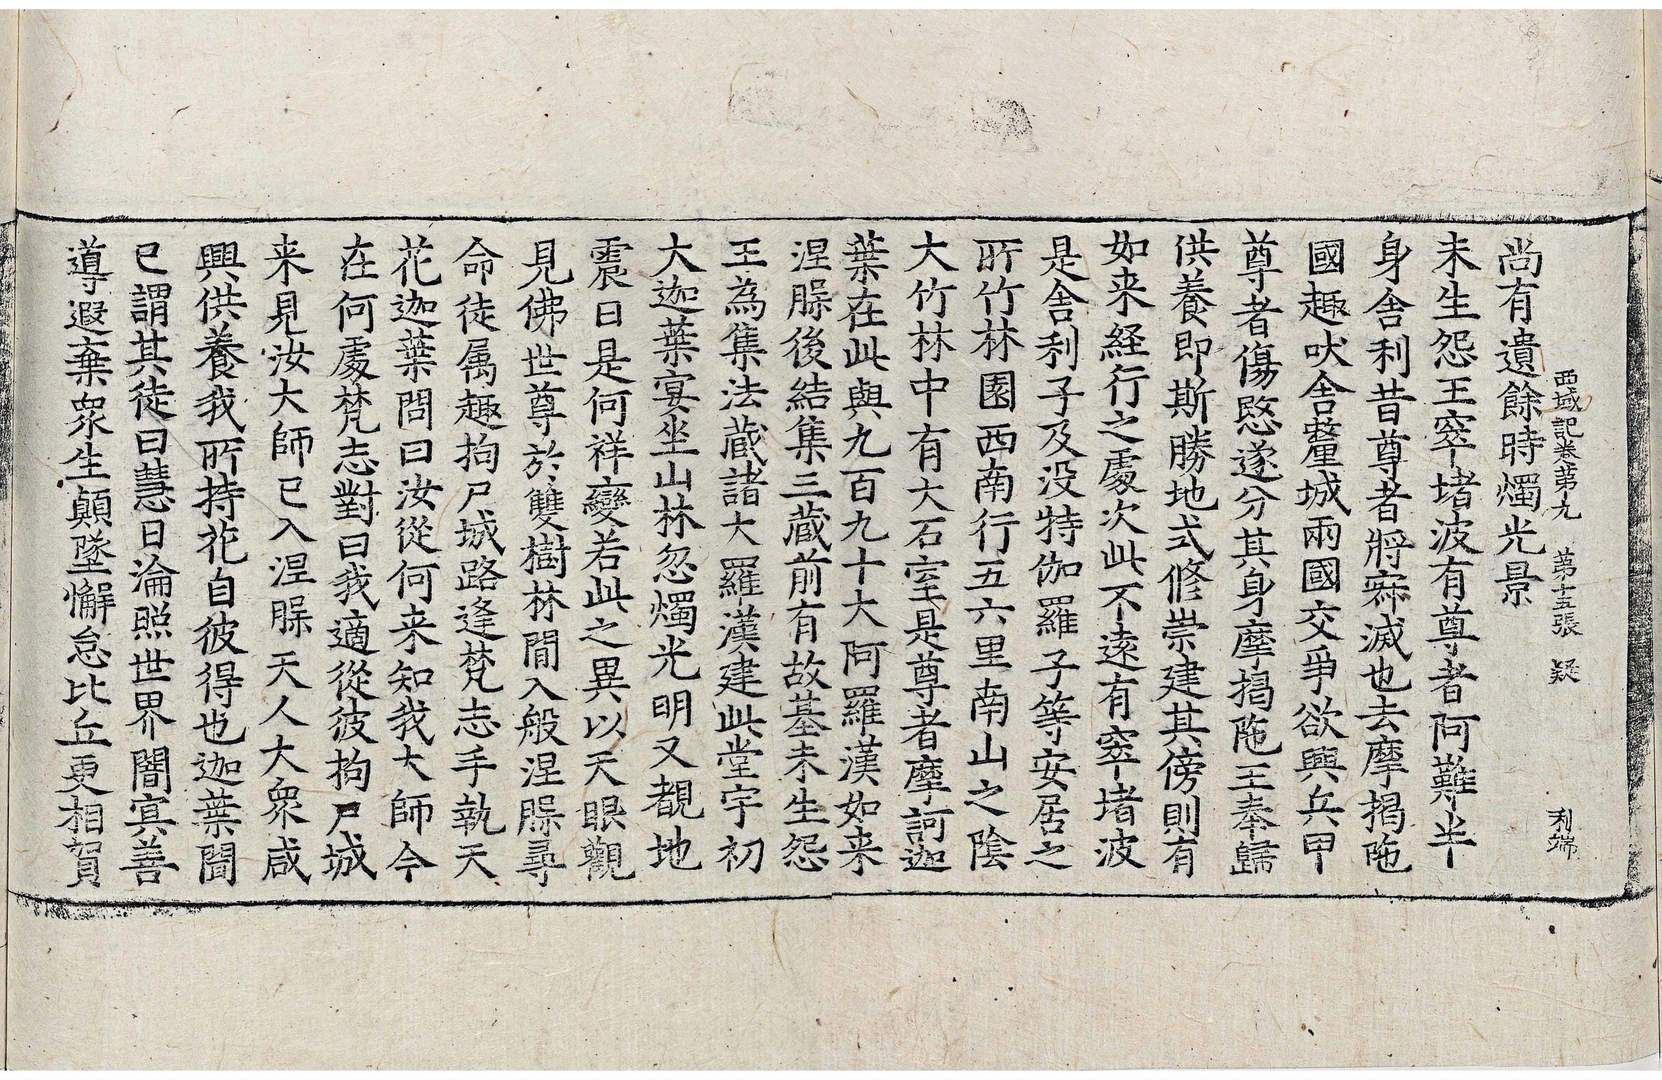 西域記卷苐九　苐十五張　疑　利端
尚有遺餘時燭光景
未生怨王窣堵波有尊者阿難半
身舍利昔尊者將寂滅也去摩揭陁
國趣吠舍釐城兩國交爭欲興兵甲
尊者傷愍遂分其身摩揭陁王奉歸
供養即斯勝地式修崇建其傍則有
如来經行之處次此不遠有窣堵波
是舍利子及没特伽羅子等安居之
所竹林園西南行五六里南山之陰
大竹林中有大石室是尊者摩訶迦
葉在此與九百九十大阿羅漢如来
涅槃後結集三藏前有故基未生怨
王為集法藏諸大羅漢建此堂宇初
大迦葉宴坐山林忽燭光明又覩地
震曰是何祥變若此之異以天眼觀
見佛世尊於雙樹林閒入般涅槃尋
命徒属趣拘尸城路逢梵志手執天
花迦葉問曰汝從何来知我大師今
在何處梵志對曰我適從彼拘尸城
来見汝大師已入涅槃天人大衆咸
興供養我所持花自彼得也迦葉聞
已謂其徒曰慧日淪照世界闇冥善
導遐棄衆生顛墜懈怠比丘更相賀